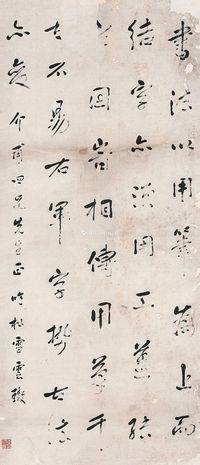 書法以用筆為上而
結字亦須用工蓋結
字因時相傳用筆千
古不易右軍字勢古法
亦變 介甫四兄先生正